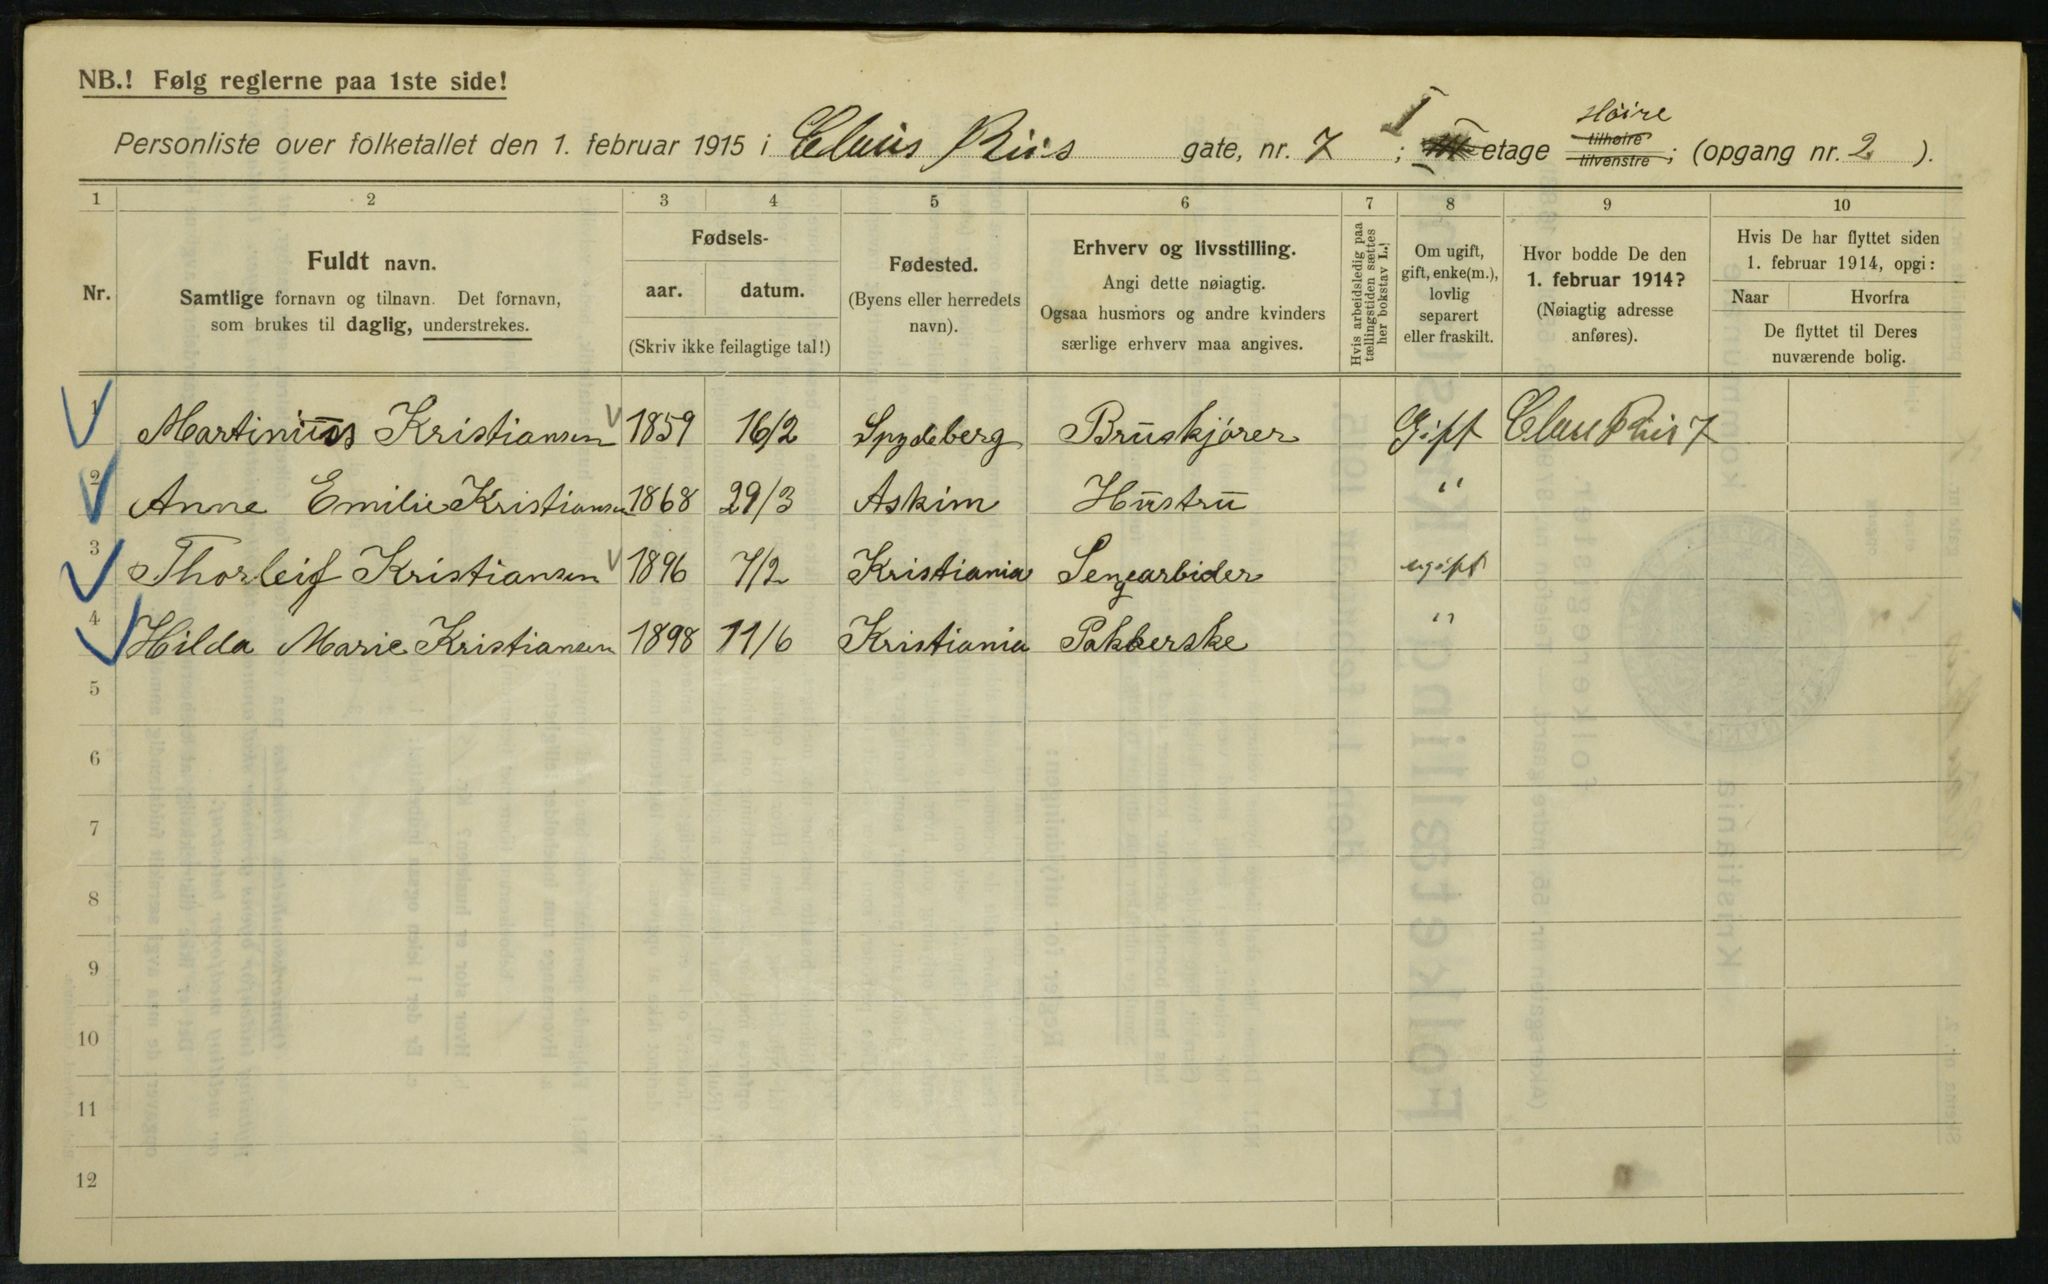 NB.! Følg reglerne paa 1ste side!
Personliste over folketallet den 1. februar 1915 i Claus Riis gate, nr. 7 ; I etage Høire tilhøire tilvenstre; (opgang nr. 2 ).
1 2 3 4 5 6 7 8 9 10
Nr.
Fuldt navn.
Samtlige fornavn og tilnavn. Det fornavn,
som brukes til daglig, understrekes.
Fødsels-
aar. datum.
(Skriv ikke feilagtige tal!)
Fødested.
(Byens eller herredets
navn).
Erhverv og livsstilling.
Angi dette nøiagtig.
Ogsaa husmors og andre kvinders
særlige erhverv maa angives.
Hvis arbeidsledig paa
tællingstiden sættes
her bokstav L.!
Om ugift,
gift, enke(m.),
lovlig
separert
eller fraskilt.
Hvor bodde De den
1. februar 1914?
(Nøiagtig adresse
anføres).
Hvis De har flyttet siden
1. februar 1914, opgi:
Naar Hvorfra
De flyttet til Deres
nuværende bolig.
1 Martinius Kristiansen 1859 16/2 Spydeberg Bruskjører Gift Claus Riis 7
2 Anne Emilie Kristiansen 1868 29/3 Askim Hustru "
3 Thorleif Kristiansen 1896 7/2 Kristiania Sengearbider ugift
4 Hilda Marie Kristiansen 1898 11/6 Kristiania Pakkerske "
5
6
7
8
9
10
11
12